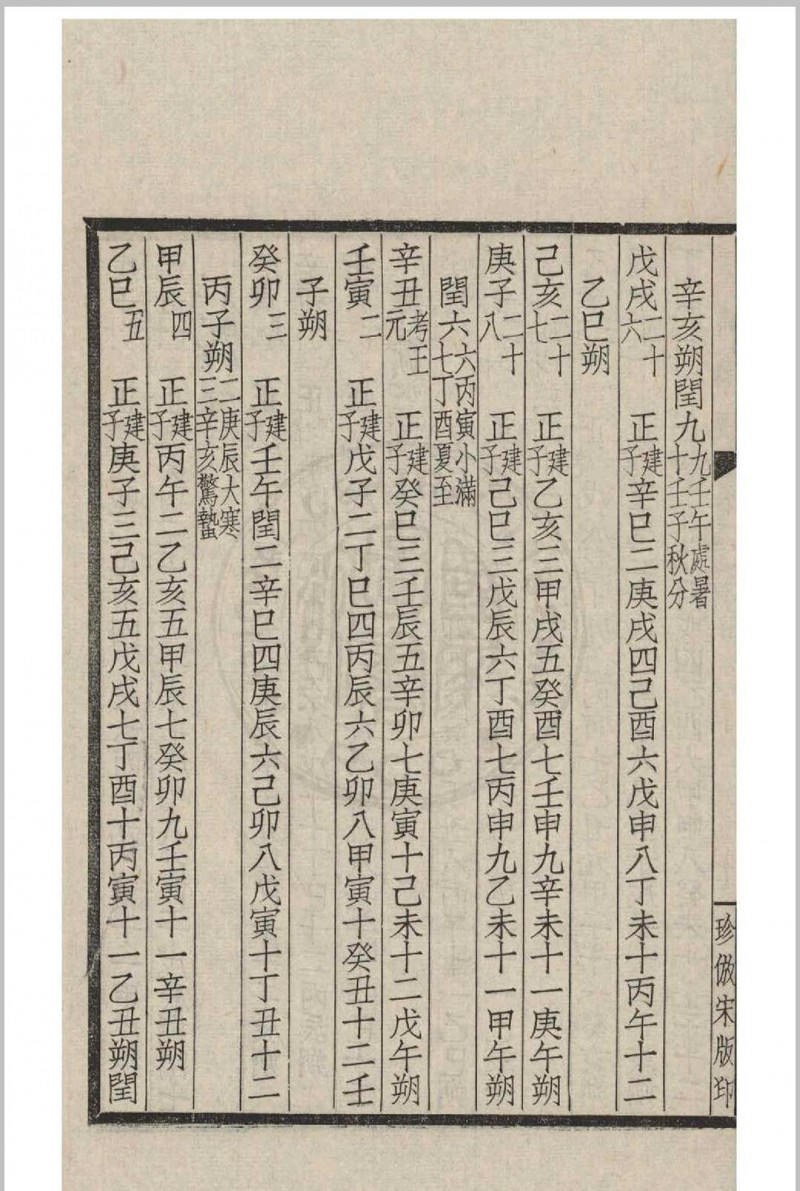 辛亥朔閏九九壬午處暑十壬子秋分
戊戌二十六 正建子辛巳二庚戌四己酉六戊申八丁未十丙午十二
乙巳朔
己亥二十七 正建子乙亥三甲戌五癸酉七壬申九辛未十一庚午朔
庚子二十八 正建子己巳三戊辰六丁酉七丙申九乙未十一甲午朔
閏六六丙寅小滿七丁酉夏至
辛丑考王元 正建子癸巳三壬辰五辛卯七庚寅十己未十二戊午朔
壬寅二 正建子戊子二丁巳四丙辰六乙卯八甲寅十癸丑十二壬
子朔
癸卯三 正建子壬午閏二辛巳四庚辰六己卯八戊寅十丁丑十二
丙子朔二庚辰大寒三辛亥驚蟄
甲辰四 正建子丙午二乙亥五甲辰七癸卯九壬寅十一辛丑朔
乙巳五 正建子庚子三己亥五戊戌七丁酉十丙寅十一乙丑朔閏
珍倣宋版印